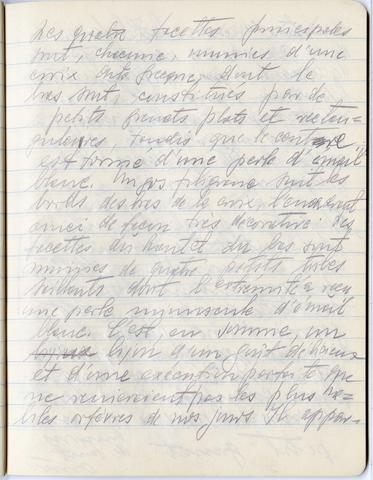 Les quatre facettes principales
sont, chacune, munies d'une
croix grecque, dont le
bras sont constitués par de
petits grenats plats et rectan-
gulaires, tandis que le centre
est formé d'une perle d'émail
blanc. Un gros filigrane suit les
bords des bras de la croix,
ainsi de façon très décorative. Les
facettes du haut et du bas sont
munies de quatre petits tubes
saillants dont l'extrémité a reçu
une perle minuscule d'émail
blanc. C'est, en somme, un
bijou d'un goût délicieux
et d'une exécution parfaite que
ne renieraient pas les plus ha-
biles orfèvres de nos jours. Il appar-